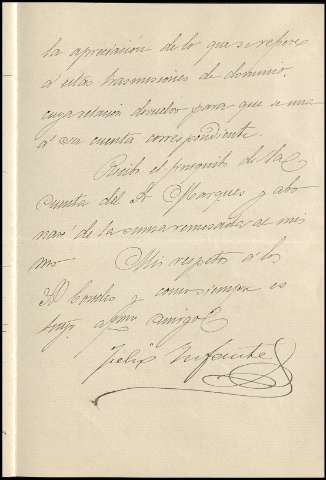 la apreciación de lo que se refiere
á estas trasmisiones de dominio,
cuya relacion devuelvo para que se una
á su cuenta correspondiente.
Recibí el presupuesto de la
cuenta del Sr Marques y abo
naré de la suma remesada al mis
mo Mis respetos á los
SS Condes y como siempre es
suyo affmo amigo
Felix Infante